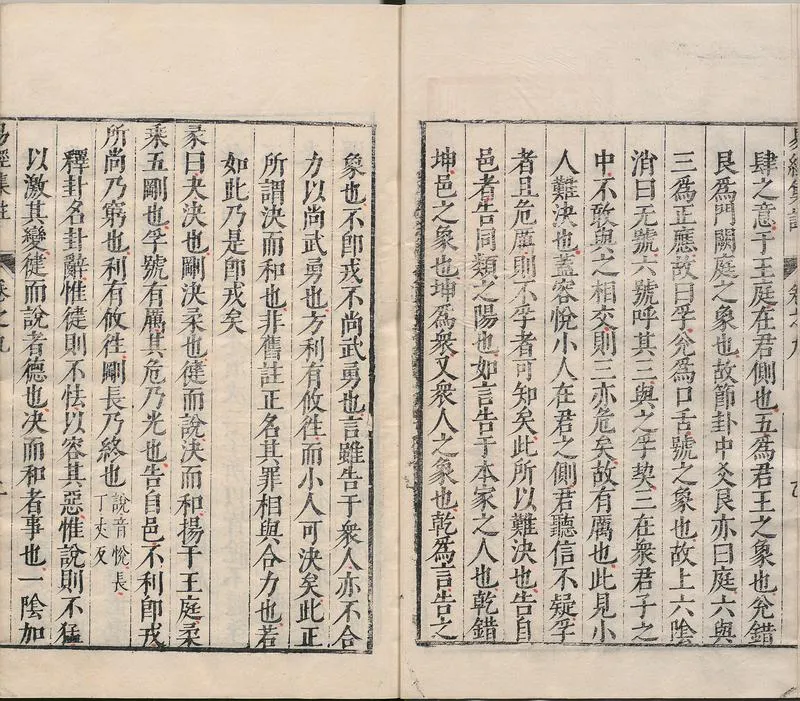 肆之意于王庭在君側也五爲君王之象也兊錯
艮爲門闕庭之象也故節卦中爻艮亦曰庭六與
三爲正應故曰孚兊爲口舌號之象也故上六陰
消曰无號六號呼其三與之孚契三在衆君子之
中不敢與之相交則三亦危矣故有厲也此見小
人難決也蓋容悅小人在君之側君聽信不疑孚
者且危厲則不孚者可知矣此所以難決也告自
邑者告同類之陽也如言告于本家之人也乾錯
坤邑之象也坤爲衆又衆人之象也乾爲言告之
象也不卽戎不尚武勇也言雖告于衆人亦不合
力以尚武勇也方利有攸徃而小人可決矣此正
所謂決而和也非舊註正名其罪相與合力也若
如此乃是卽戎矣
彖曰夬決也剛決柔也健而說決而和揚于王庭柔
乘五剛也孚號有厲其危乃光也告自邑不利卽戎
所尚乃窮也利有攸徃剛長乃終也 說音悅長
丁丈反
釋卦名卦辭惟健則不怯以容其惡惟說則不猛
以激其變健而說者德也决而和者事也一陰加
易經集註 卷之九